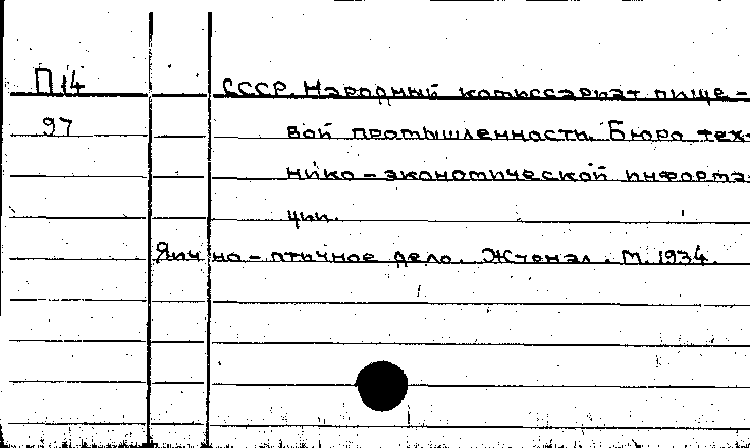 П14 СССР. Народный комиссариат пище-
97 вой промышленности. Бюро тех-
нико-экономической информа-
ции.
Яично-птичное дело. Жтонал. М. 1934.